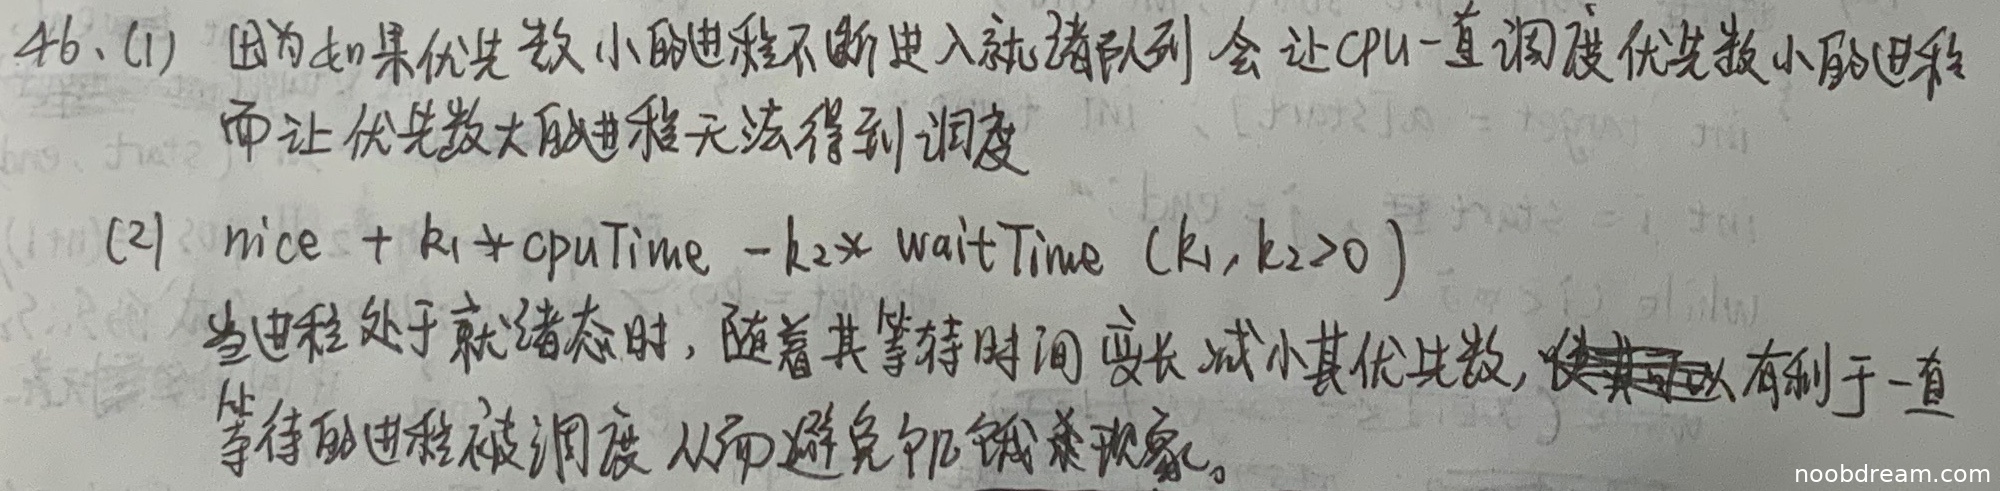 46、(1) 因为如果优先数小的进程不断进入就绪队列 会让CPU一直调度优先数小的进程
而让优先数大的进程无法得到调度
(2) nice + k₁*cpuTime - k₂* waitTime (k₁, k₂>0)
当进程处于就绪态时, 随着其等待时间变长 减小其优先数, 有利于一直
等待的进程被调度 从而避免饥饿现象。
noobdream.com